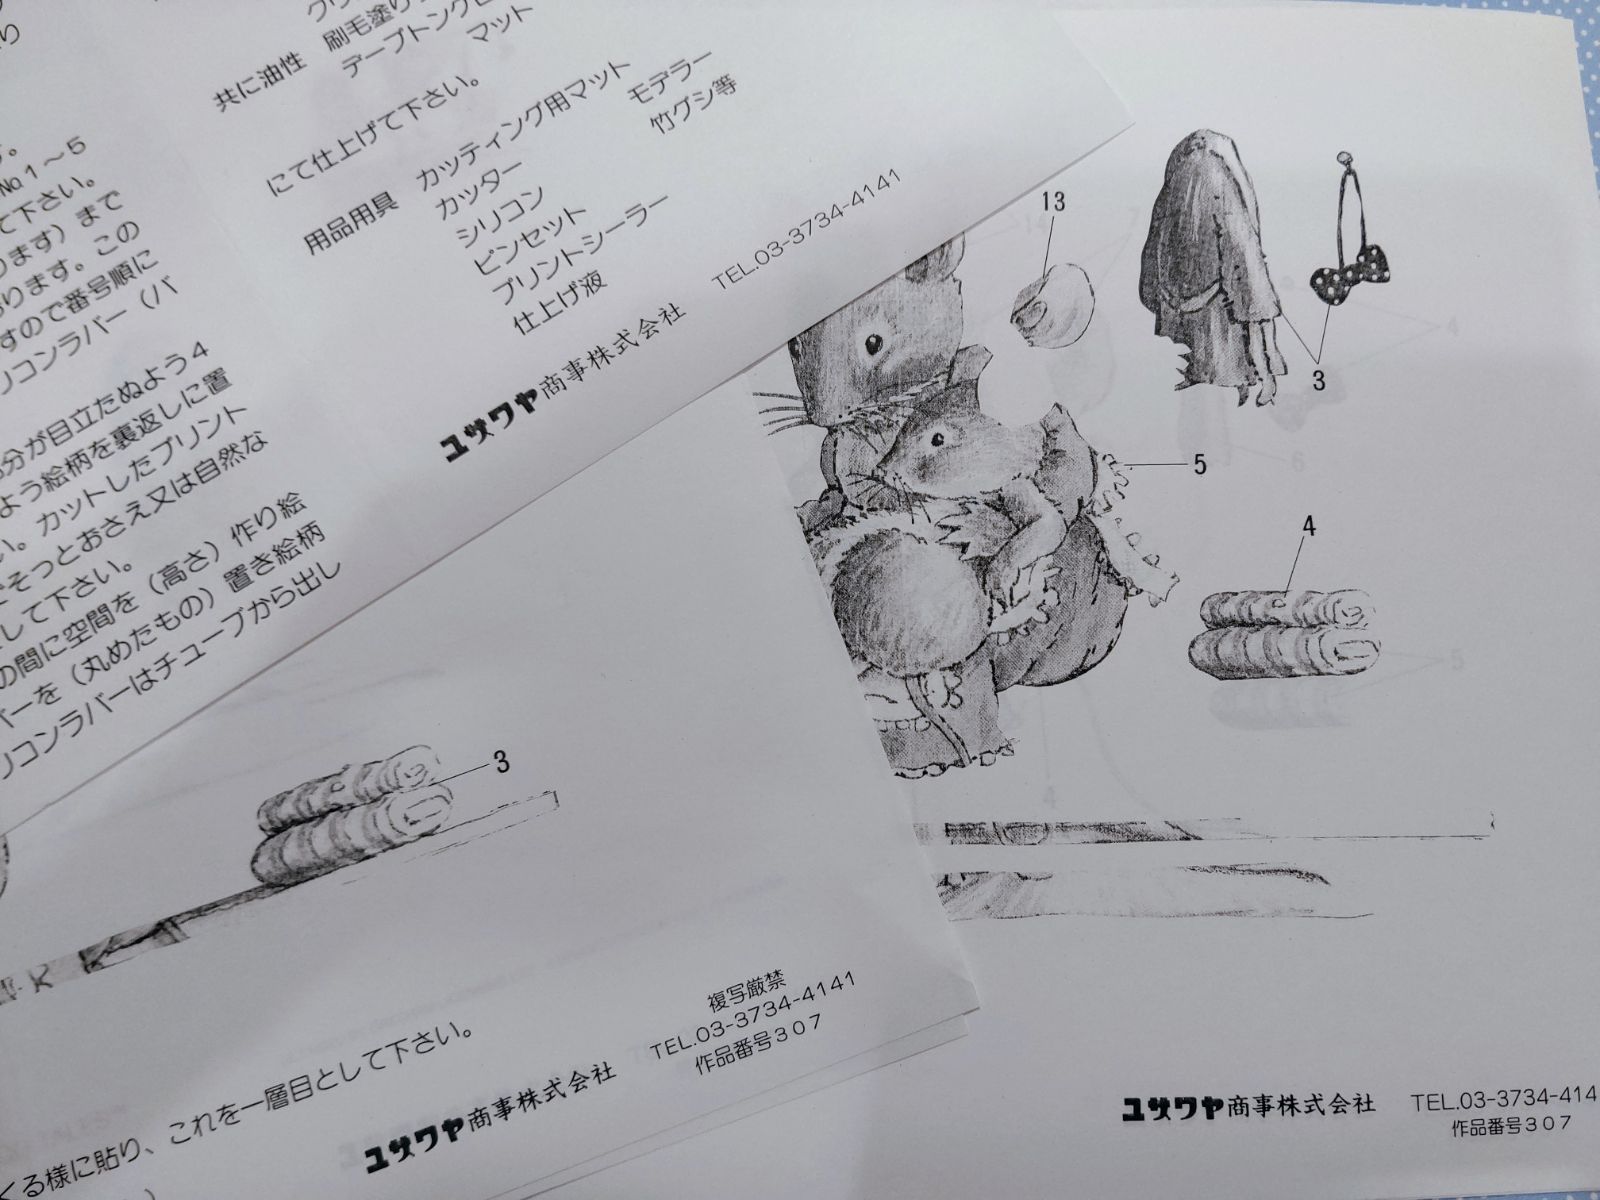 共に油性 刷毛塗り
ディープトング
マット
にて仕上げて下さい。
用品用具 カッティング用マット モデラー
カッター 竹グシ等
シリコン
ピンセット
プリントシーラー
仕上げ液
ユザワヤ商事株式会社 TEL.03-3734-4141
No.1～5
て下さい。
ります）まで
ります。この
すので番号順に
リコンラバー（バ
部分が目立たぬよう4
よう絵柄を裏返しに置
い。カットしたプリント
でそっとおさえ又は自然な
して下さい。
の間に空間を（高さ）作り絵
バーを（丸めたもの）置き絵柄
リコンラバーはチューブから出し
3
くる様に貼り、これを一層目として下さい。
複写厳禁
ユザワヤ商事株式会社 TEL.03-3734-4141
作品番号307
13
3
5
4
ユザワヤ商事株式会社 TEL.03-3734-414
作品番号307